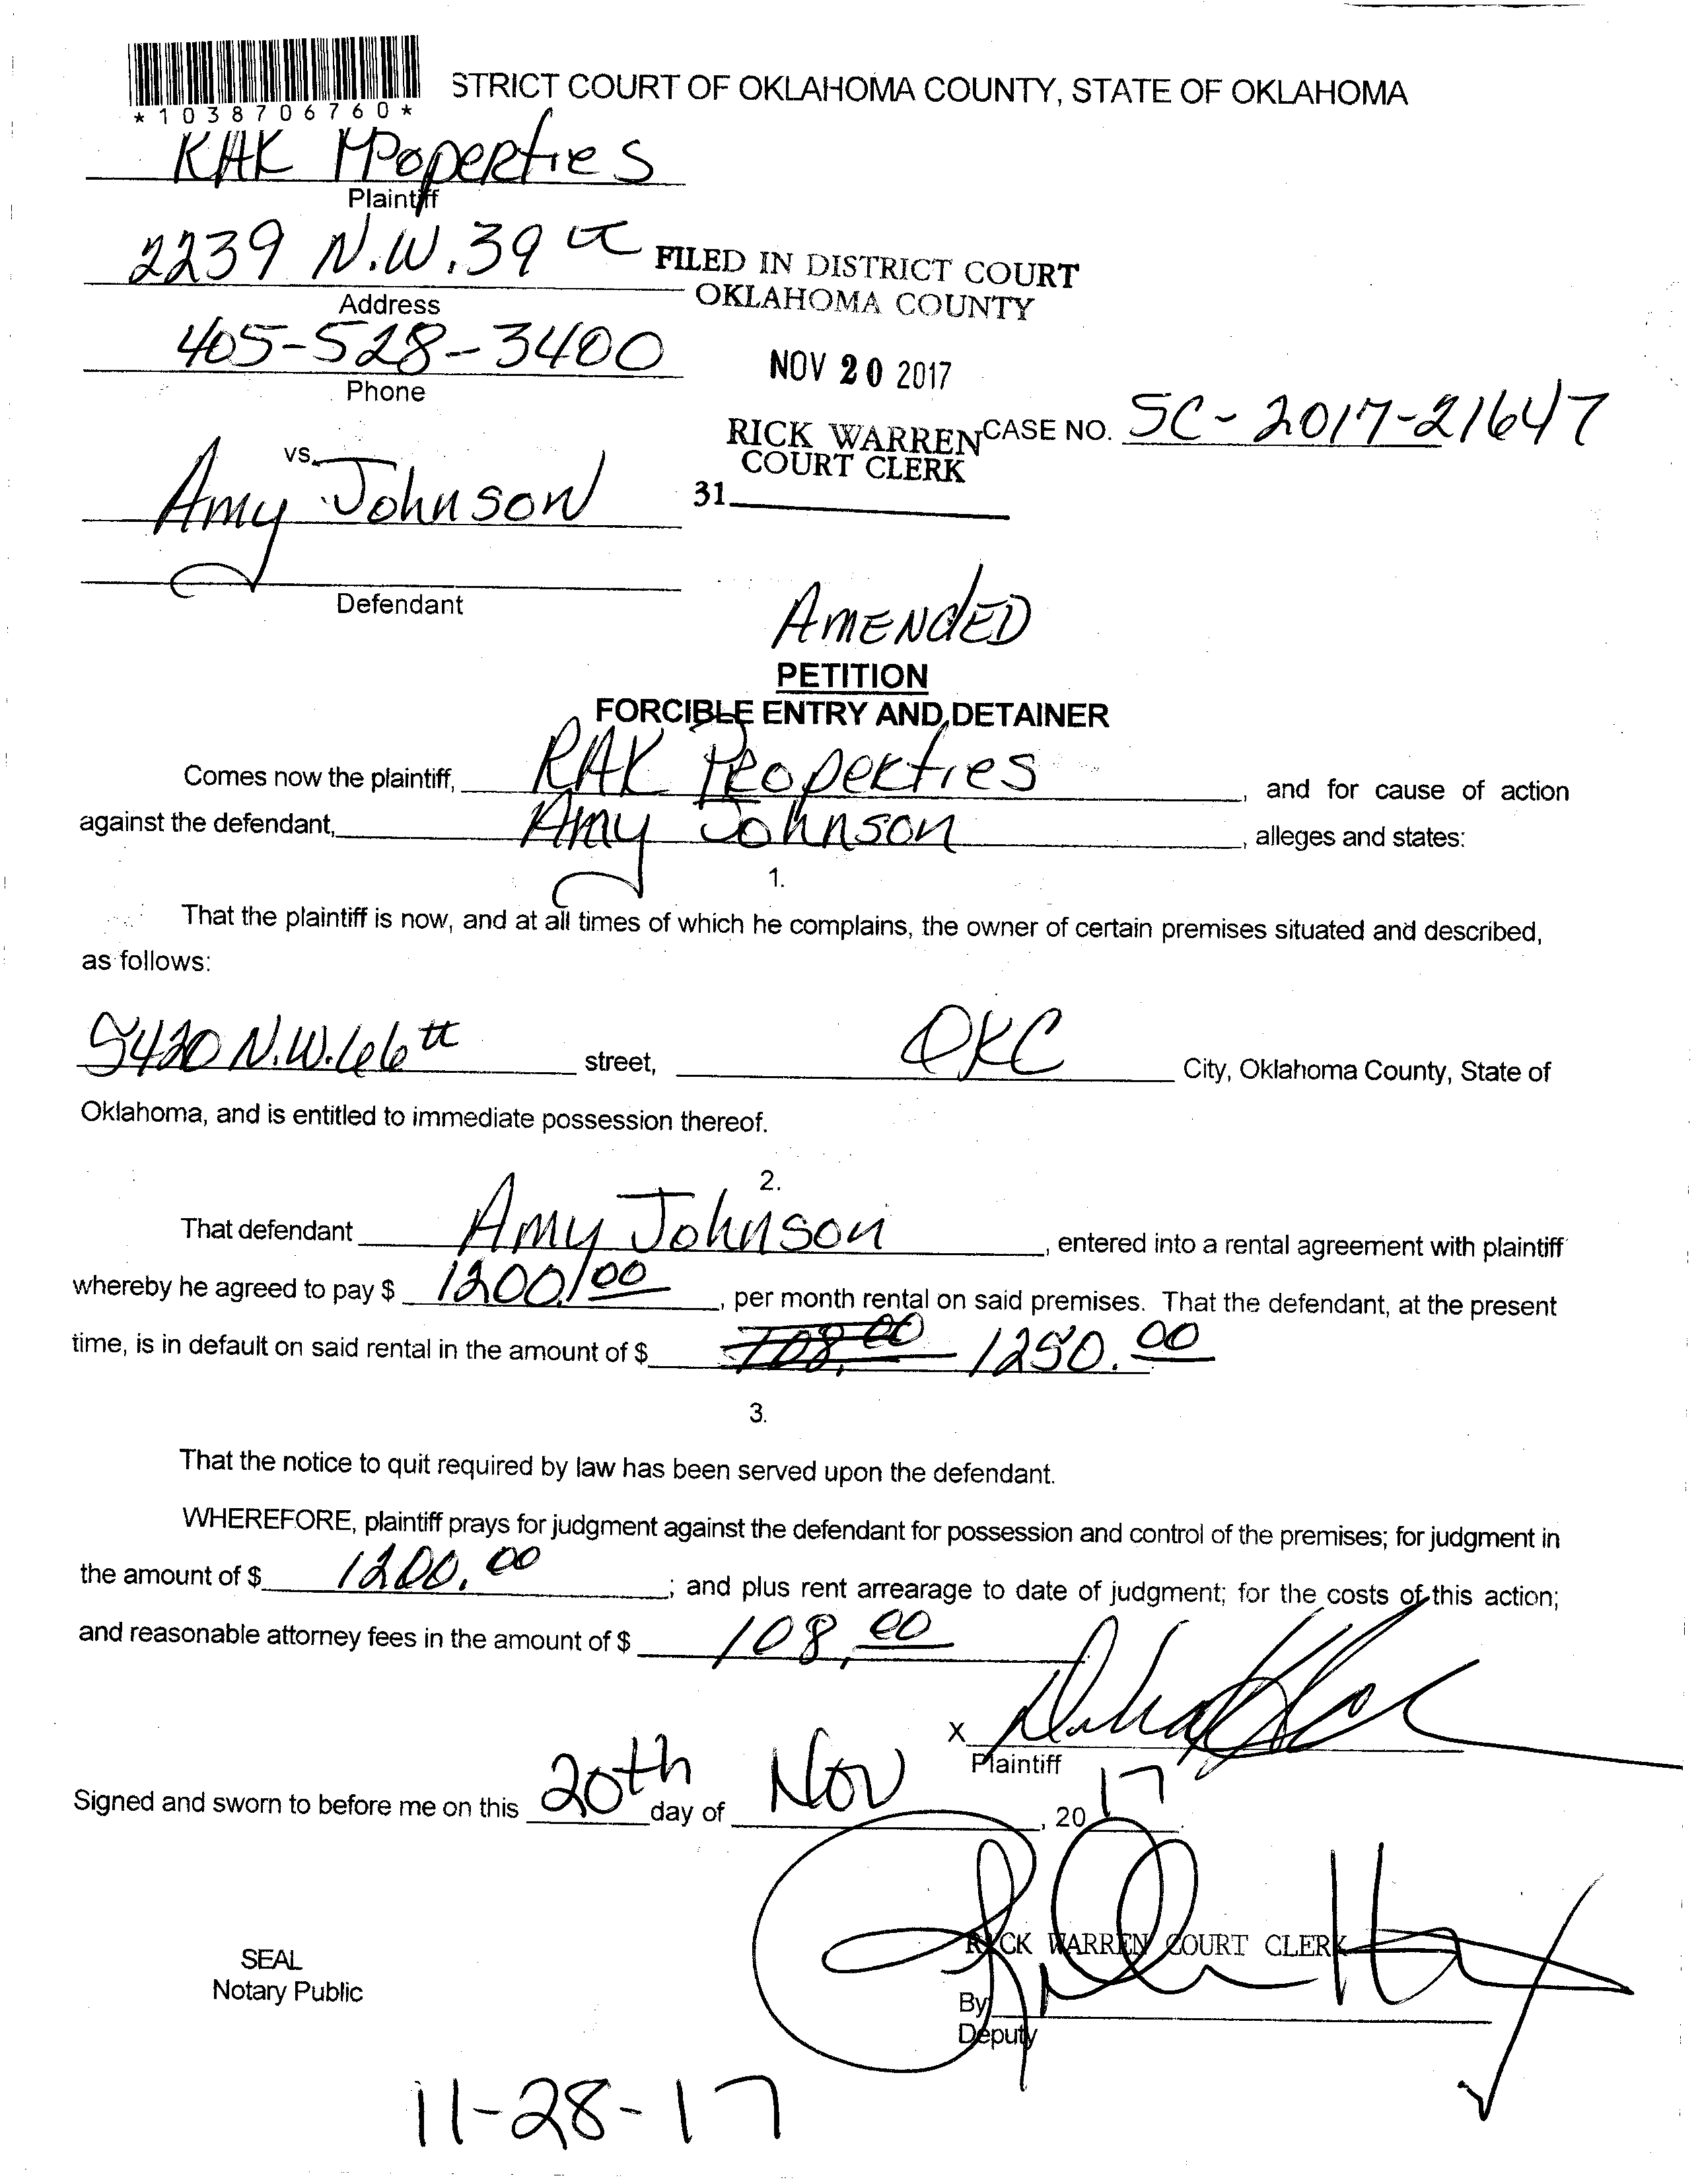 STRICT COURT OF OKLAHOMA COUNTY, STATE OF OKLAHOMA
*1038706760*
RAK Properties
Plaintiff
2239 N.W. 39th
FILED IN DISTRICT COURT
Address
OKLAHOMA COUNTY
405-528-3400
NOV 20 2017
Phone
RICK WARREN CASE NO. SC-2017-21647
COURT CLERK
vs.
Amy Johnson
31
Defendant
AMENDED
PETITION
FORCIBLE ENTRY AND DETAINER
Comes now the plaintiff, RAK Properties, and for cause of action
against the defendant, Amy Johnson, alleges and states:
1.
That the plaintiff is now, and at all times of which he complains, the owner of certain premises situated and described,
as follows:
5420 N.W. 66th street, OKC City, Oklahoma County, State of
Oklahoma, and is entitled to immediate possession thereof.
2.
That defendant Amy Johnson, entered into a rental agreement with plaintiff
whereby he agreed to pay $ 1200.00, per month rental on said premises. That the defendant, at the present
time, is in default on said rental in the amount of $ 108.00 1250.00
3.
That the notice to quit required by law has been served upon the defendant.
WHEREFORE, plaintiff prays for judgment against the defendant for possession and control of the premises; for judgment in
the amount of $ 1200.00; and plus rent arrearage to date of judgment; for the costs of this action;
and reasonable attorney fees in the amount of $ 108.00
X
Plaintiff
Signed and sworn to before me on this 20th day of Nov, 20 17
RICK WARREN COURT CLERK
SEAL
Notary Public
By
Deputy
11-28-17